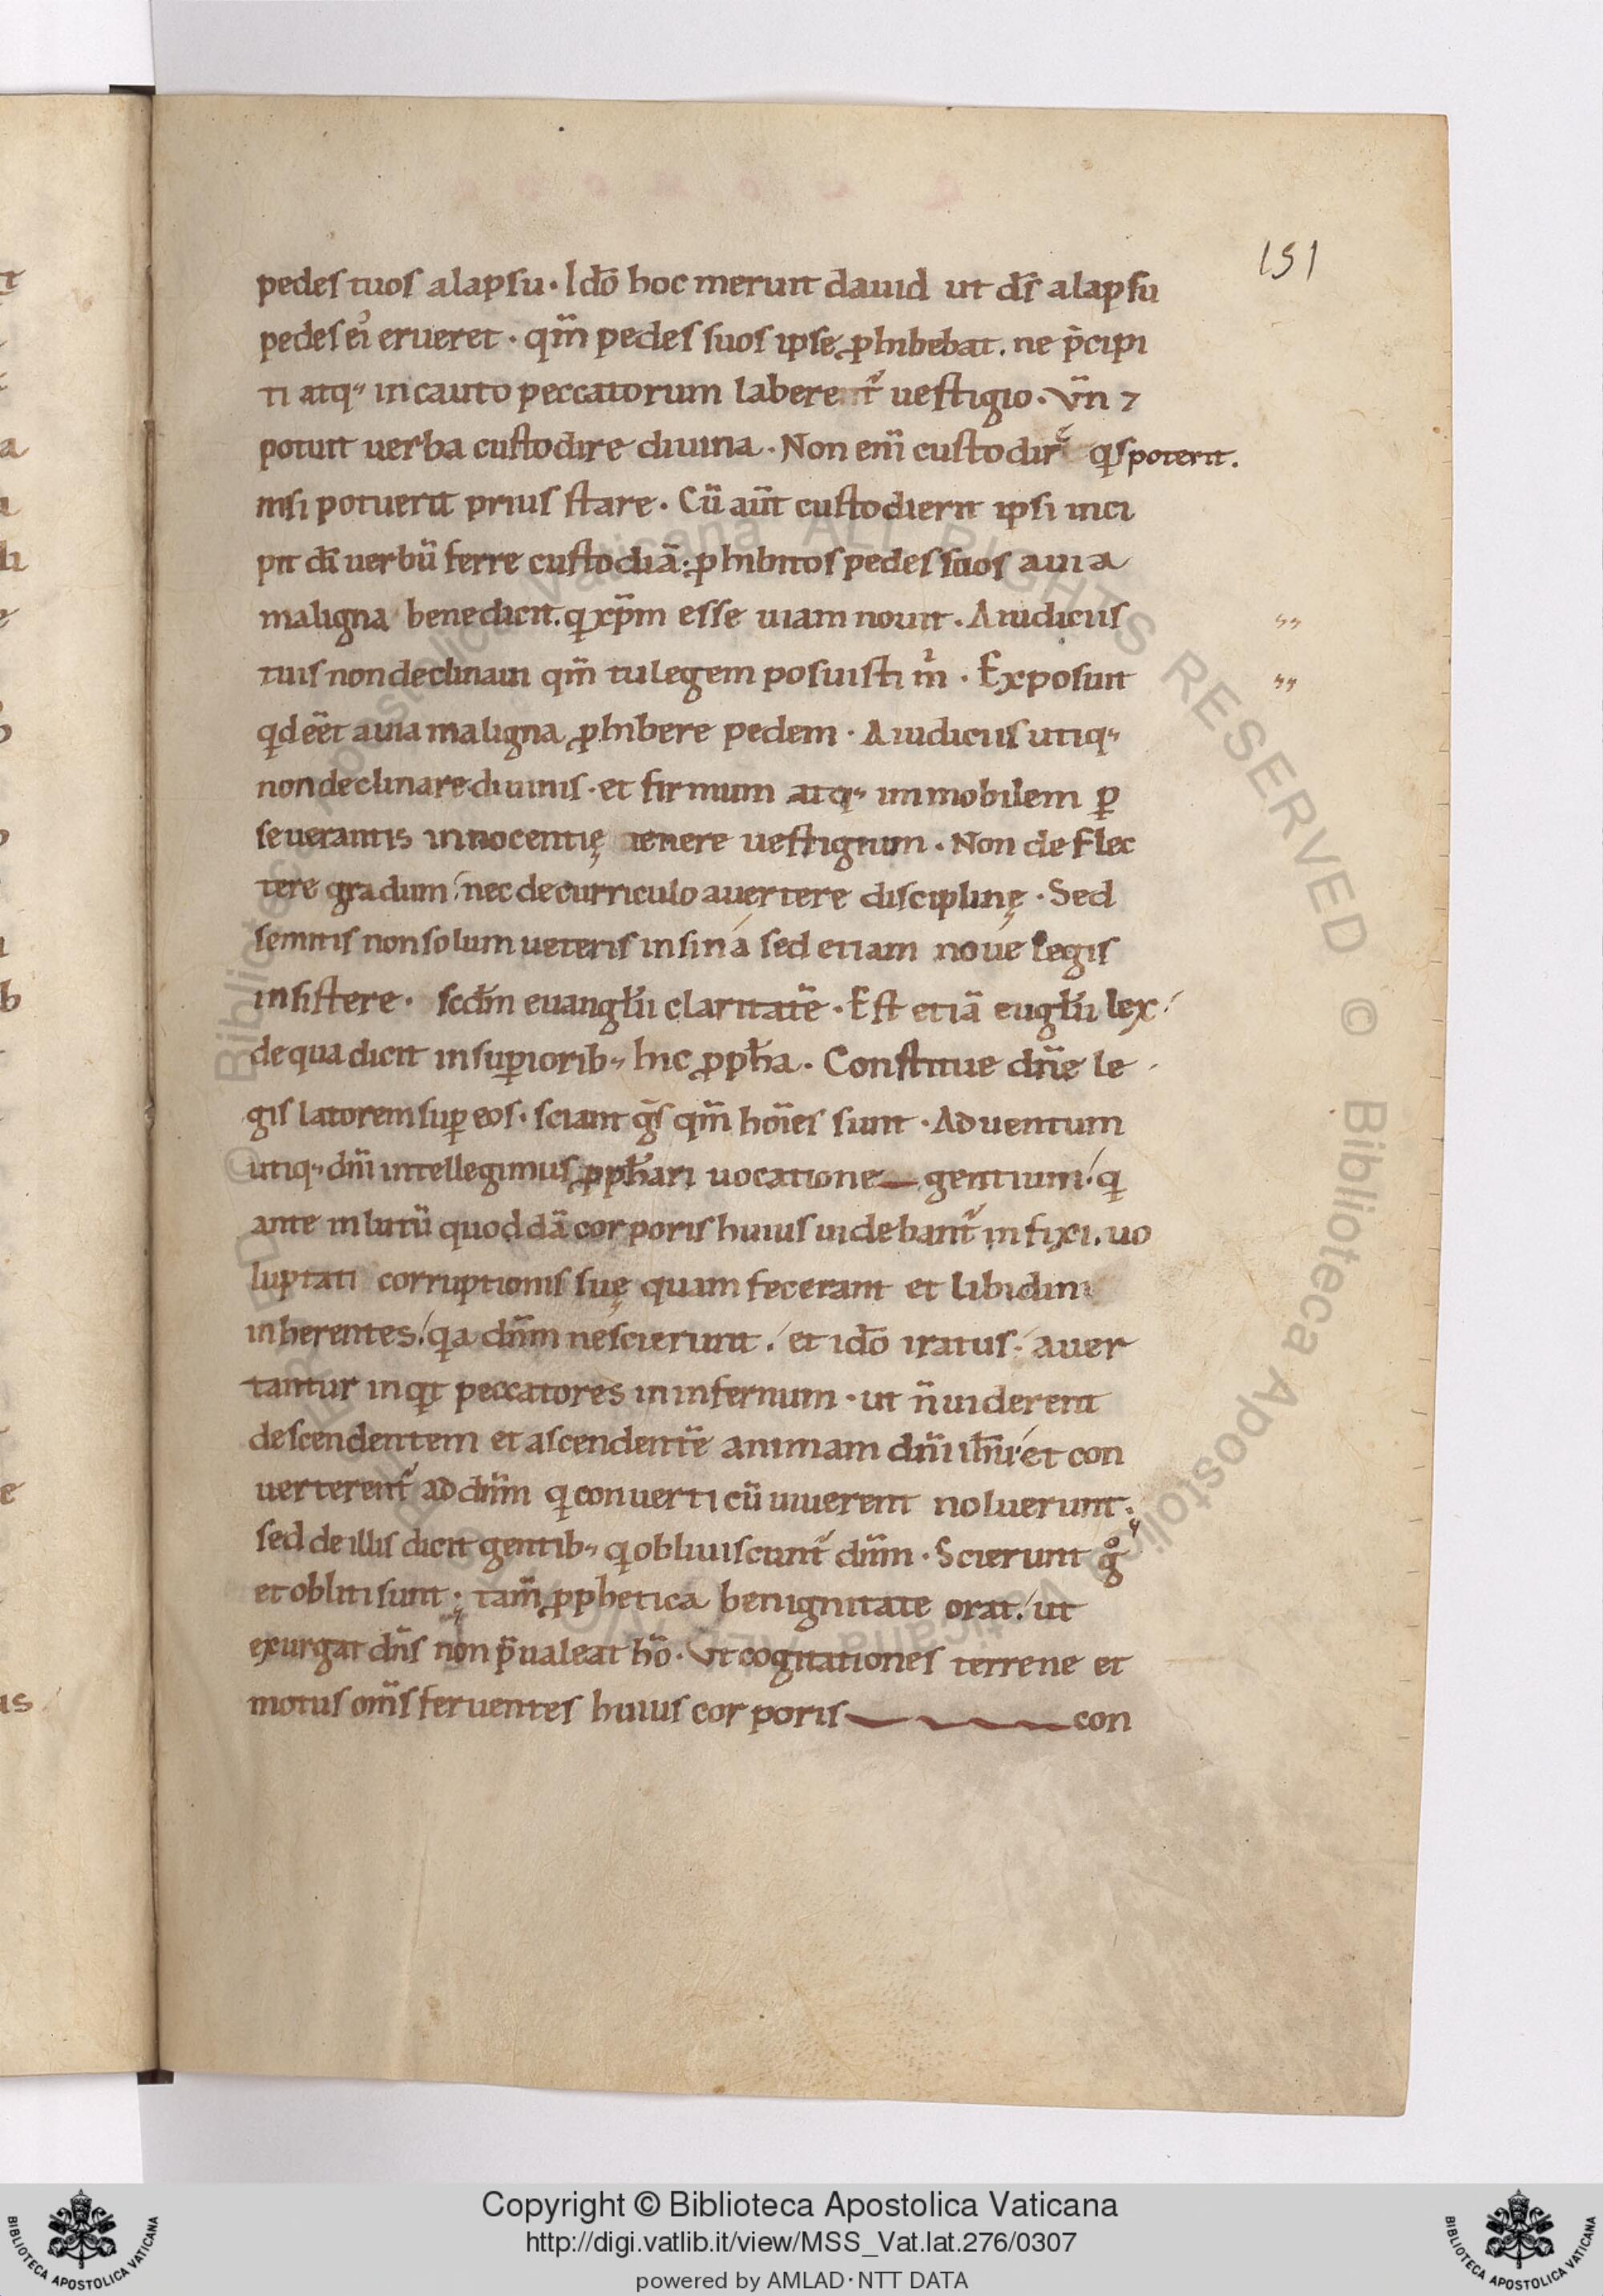 151
pedes tuos a lapsu · Ido̅ hoc meruit dauid ut ds̅ a lapsu
pedes ei᾽ erueret · qm̅ pedes suos ipse ꝓhibebat. ne p̅cipi
ti atq᷒ incauto peccatorum laberent᷑ uestigio · Vn̅ ⁊
potuit uerba custodire diuina · Non eni̅ custodire qs poterit.
nisi potuerit prius stare · Cu̅ aut̅ custodierit ipsi inci
pit di̅ uerbu̅ ferre custodia̅: ꝓhibitos pedes suos a uia
maligna benedicit. q xp̅m esse uiam nouit · A iudiciis
tuis non declinaui qm̅ tu legem posuisti m̅ · Exposuit
qd ee̅t a uia maligna ꝓhibere pedem · A iudiciis utiq᷒
non declinare diuinis · et firmum atq᷒ immobilem ꝑ
seuerantis innocentię tenere uestigium · Non deflec
tere gradum nec de curriculo auertere disciplinę · Sed
semitis non solum ueteris insina sed etiam noue legis
insistere · scd̅m euangl̅ii claritate̅ · Est etia̅ eugl̅ii lex
de qua dicit in supiorib᷒ hic ꝓph̅a · Constitue dn̅e le
gis latorem suꝑ eos · sciant gs̅ qm̅ ho̅ies sunt · Aduentum
utiq᷒ dn̅i intellegimus ꝓph̅ari uocatione gentium · q
ante in lutu̅ quodda̅ corporis huius uidebant᷑ infixi. uo
luptati corruptionis suę quam fecerant et libidini
inherentes. qa dn̅m nescierunt. et ido̅ iratus · auer
tantur inqt peccatores in infernum · ut n̅ uiderent
descendentem et ascendente̅ animam dn̅i ih̅u et con
uerterent᷑ ad dn̅m q conuerti cu̅ uiuerent noluerunt ·
sed de illis dicit gentib᷒ q obliuiscunt᷑ dn̅m · Scierunt gͦ
et obliti sunt; tam̅ ꝓphetica benignitate orat. ut
exurgat dn̅s non p̅ualeat ho̅ · Vt cogitationes terrene et
motus om̅s feruentes huius corporis con
Copyright © Biblioteca Apostolica Vaticana
http://digi.vatlib.it/view/MSS_Vat.lat.276/0307
powered by AMLAD·NTT DATA